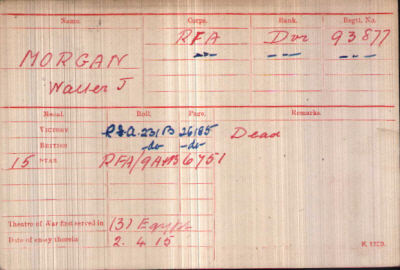 Name. Corps. Rank. Regtl. No.
MORGAN RFA Dvr 93877
Walter J
Medal. Roll. Page. Remarks.
VICTORY RGA. 231B 26185 Dead
BRITISH -do- -do-
15 STAR RFA/9A 6751
Theatre of War first served in (3) Egypt
Date of entry therein 2. 4. 15